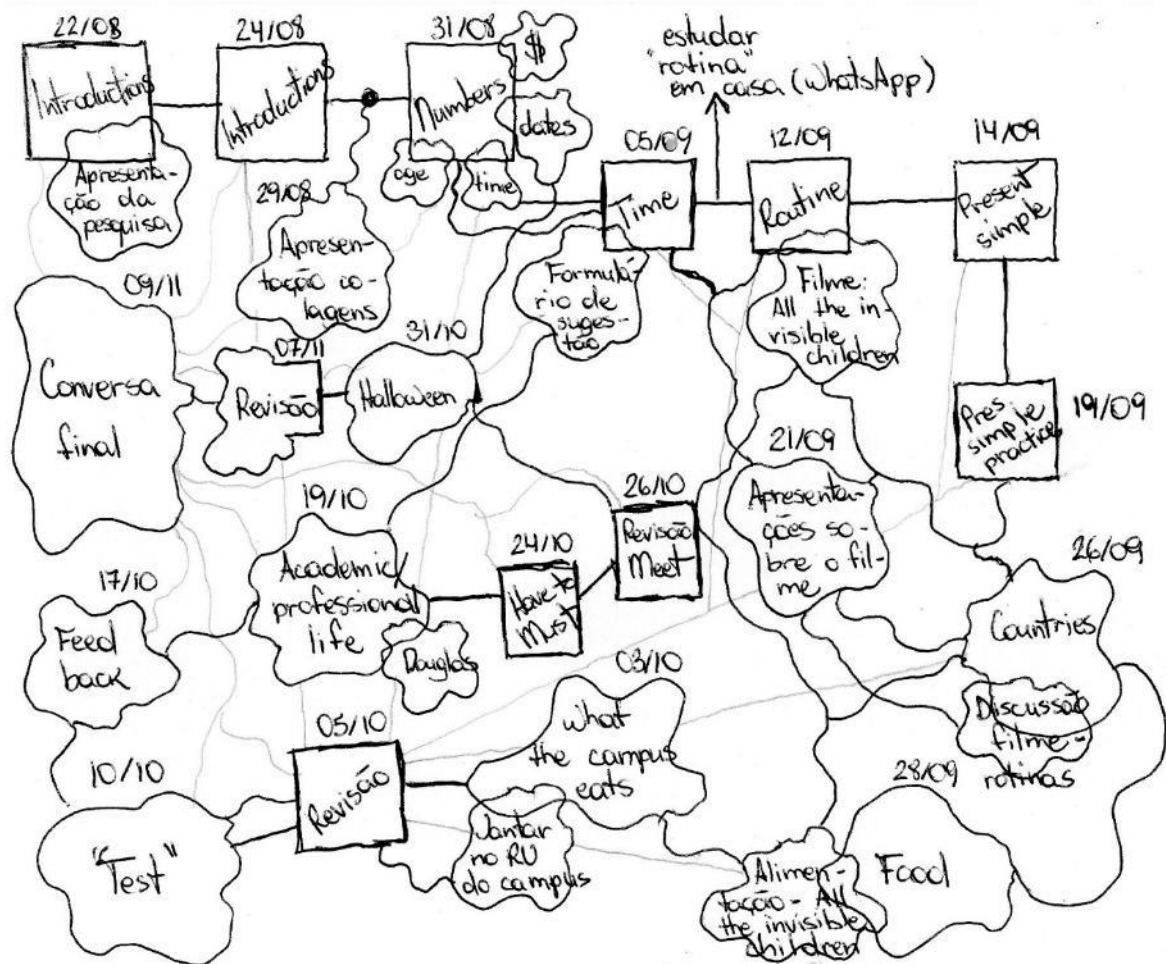 22/08
Introductions
Apresenta-
ção da
pesquisa
24/08
Introductions
29/08
Apresen-
tação co-
lagens
31/08
Numbers
$
dates
age
time
05/09
Time
Formulá-
rio de
suges-
tão
estudar
"rotina"
em casa (WhatsApp)
12/09
Routine
Filme:
All the in-
visible
children
14/09
Present
simple
19/09
Pres
simple
practice
21/09
Apresenta-
ções so-
bre o fil-
me
26/09
Countries
Discussão
filme-
rotinas
28/09
Food
Alimen-
tação - All
the invisible
children
03/10
What
the campus
eats
Jantar
no RU
do campus
05/10
Revisão
10/10
"Test"
17/10
Feed
back
19/10
Academic/
professional
life
Douglas
24/10
Have to
Must
26/10
Revisão
Meet
31/10
Halloween
07/11
Revisão
09/11
Conversa
final